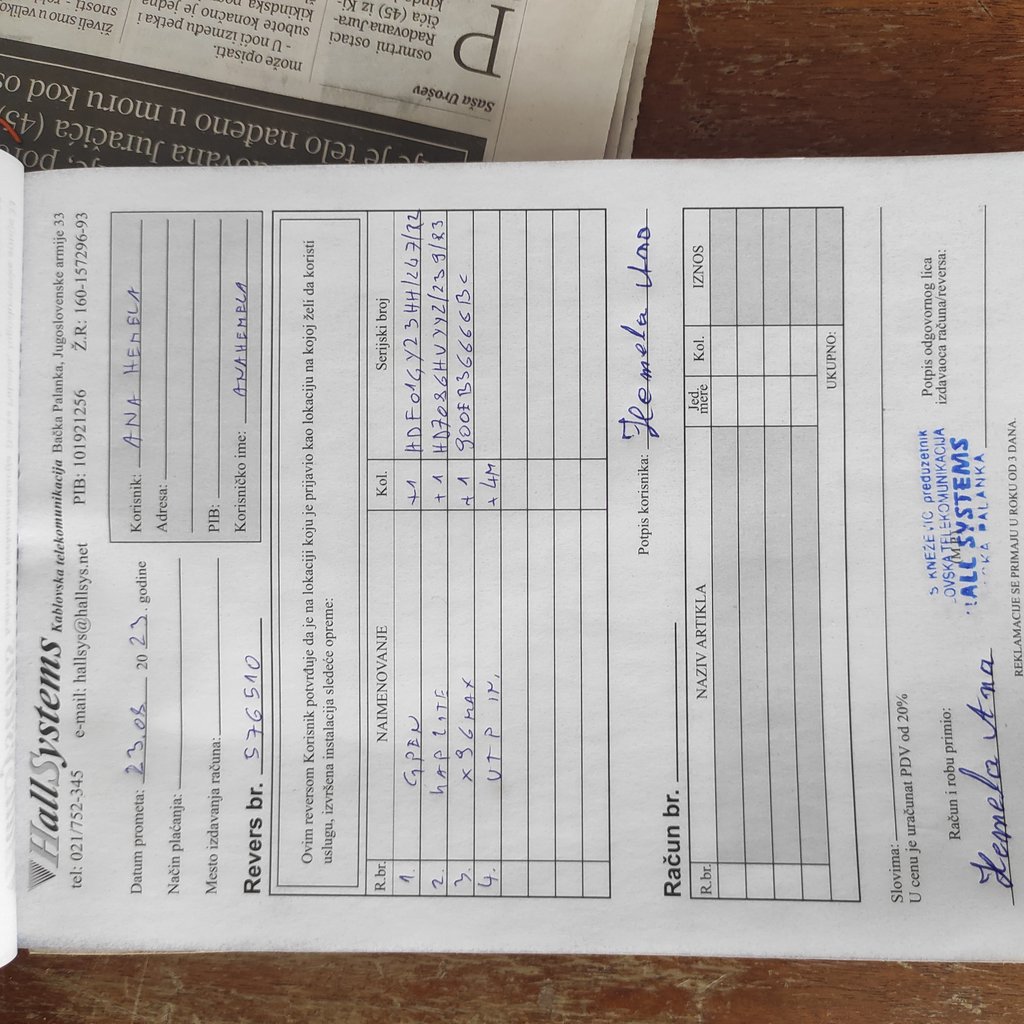 HallSystems Kablovska telekomunikacija Bačka Palanka, Jugoslovenske armije 33
tel: 021/752-345 e-mail: hallsys@hallsys.net PIB: 101921256 Ž.R: 160-157296-93
Datum prometa: 23.08 20 23. godine
Način plaćanja:
Mesto izdavanja računa:
Revers br. 576510
Korisnik: ANA HEMELA
Adresa:
PIB:
Korisničko ime: ANAHEMELA
Ovim reversom Korisnik potvrđuje da je na lokaciji koju je prijavio kao lokaciju na kojoj želi da koristi
uslugu, izvršena instalacija sledeće opreme:
R.br. NAIMENOVANJE Kol. Serijski broj
1. GPON +1
2. hAP LITE +1
3. X96 MAX +1
4. UTP IN. +4M
Potpis korisnika: Hemela Ana
Račun br.
R.br. NAZIV ARTIKLA Jed. mere Kol. IZNOS
UKUPNO:
Slovima:
U cenu je uračunat PDV od 20%
Račun i robu primio:
Hemela Ana
KNEŽEVIĆ preduzetnik
OVSKA TELEKOMUNIKACIJA
ALL SYSTEMS
KA PALANKA
Potpis odgovornog lica
izdavaoca računa/reversa:
REKLAMACIJE SE PRIMAJU U ROKU OD 3 DANA.
je telo nađeno u moru kod
ovana Juračića (45)
Saša Urošev
P
osmrtni ostaci
Radovana Jura-
čića (45) iz Ki-
može opisati.
- U noći između petka i
subote konačno je
kikindska
živeli smo u veliko